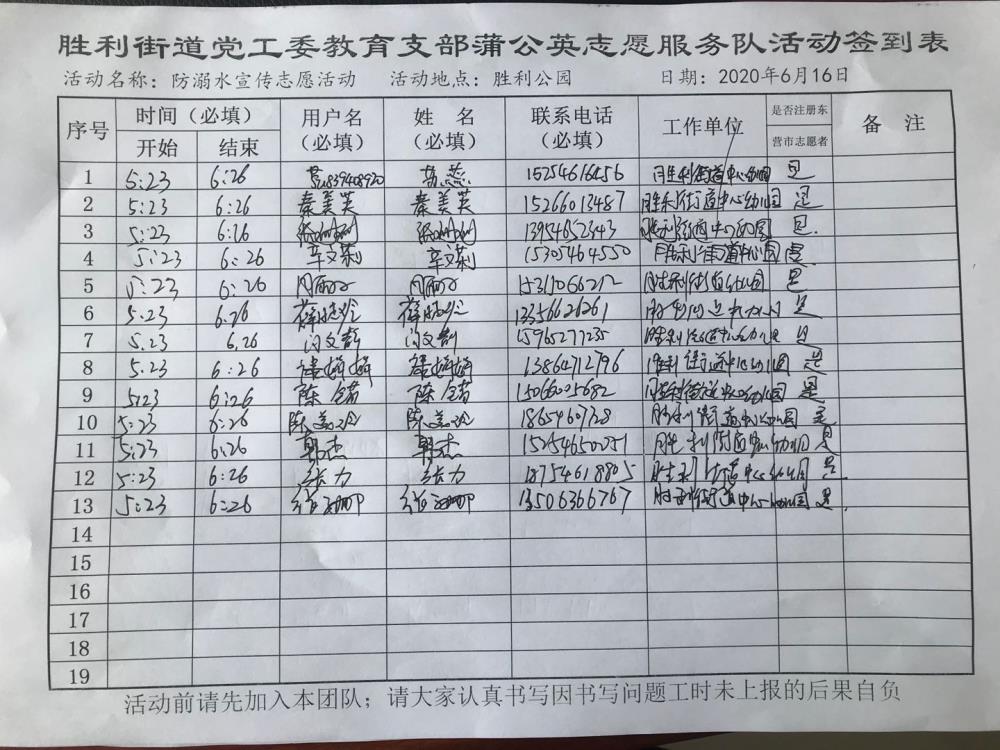 胜利街道党工委教育支部蒲公英志愿服务队活动签到表
活动名称：防溺水宣传志愿活动 活动地点：胜利公园 日期：2020年6月16日
序号 时间（必填） 用户名（必填） 姓 名（必填） 联系电话（必填） 工作单位 是否注册东营市志愿者 备 注
开始 结束
1 5:23 6:26 15254616456 胜利街道中心幼儿园 是
2 5:23 6:26 秦美芙 秦美芙 15266013487 胜利街道中心幼儿园 是
3 5:23 6:26 13954652343 胜利街道中心幼儿园 是
4 5:23 6:26 辛文莉 辛文莉 15305464550 胜利街道中心园 是
5 5:23 6:26 胜利街道幼儿园 是
6 5:23 6:26 13356626261 是
7 5.23 6.26 闫文静 闫文静 15965277235 胜利街道中心幼儿园 是
8 5:23 6:26 13864712796 胜利街道中心幼儿园 是
9 5:23 6:26 陈 陈 15066025682 胜利街道中心幼儿园 是
10 5:23 6:26 陈美玲 陈美玲 18654607728 胜利街道中心幼儿园 是
11 5:23 6:26 郭杰 郭杰 15254650251 胜利街道中心幼儿园 是
12 5:23 6:26 张力 张力 18754618805 胜利街道中心幼儿园 是
13 5:23 6:26 13506366767 胜利街道中心幼儿园 是
14
15
16
17
18
19
活动前请先加入本团队；请大家认真书写因书写问题工时未上报的后果自负